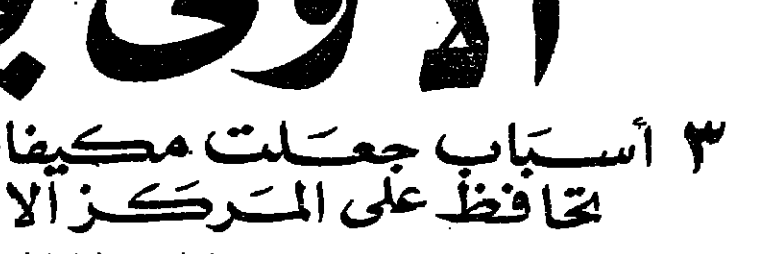 الأولى
٣ أسباب جعلت مكيفا
تحافظ على المركز الا